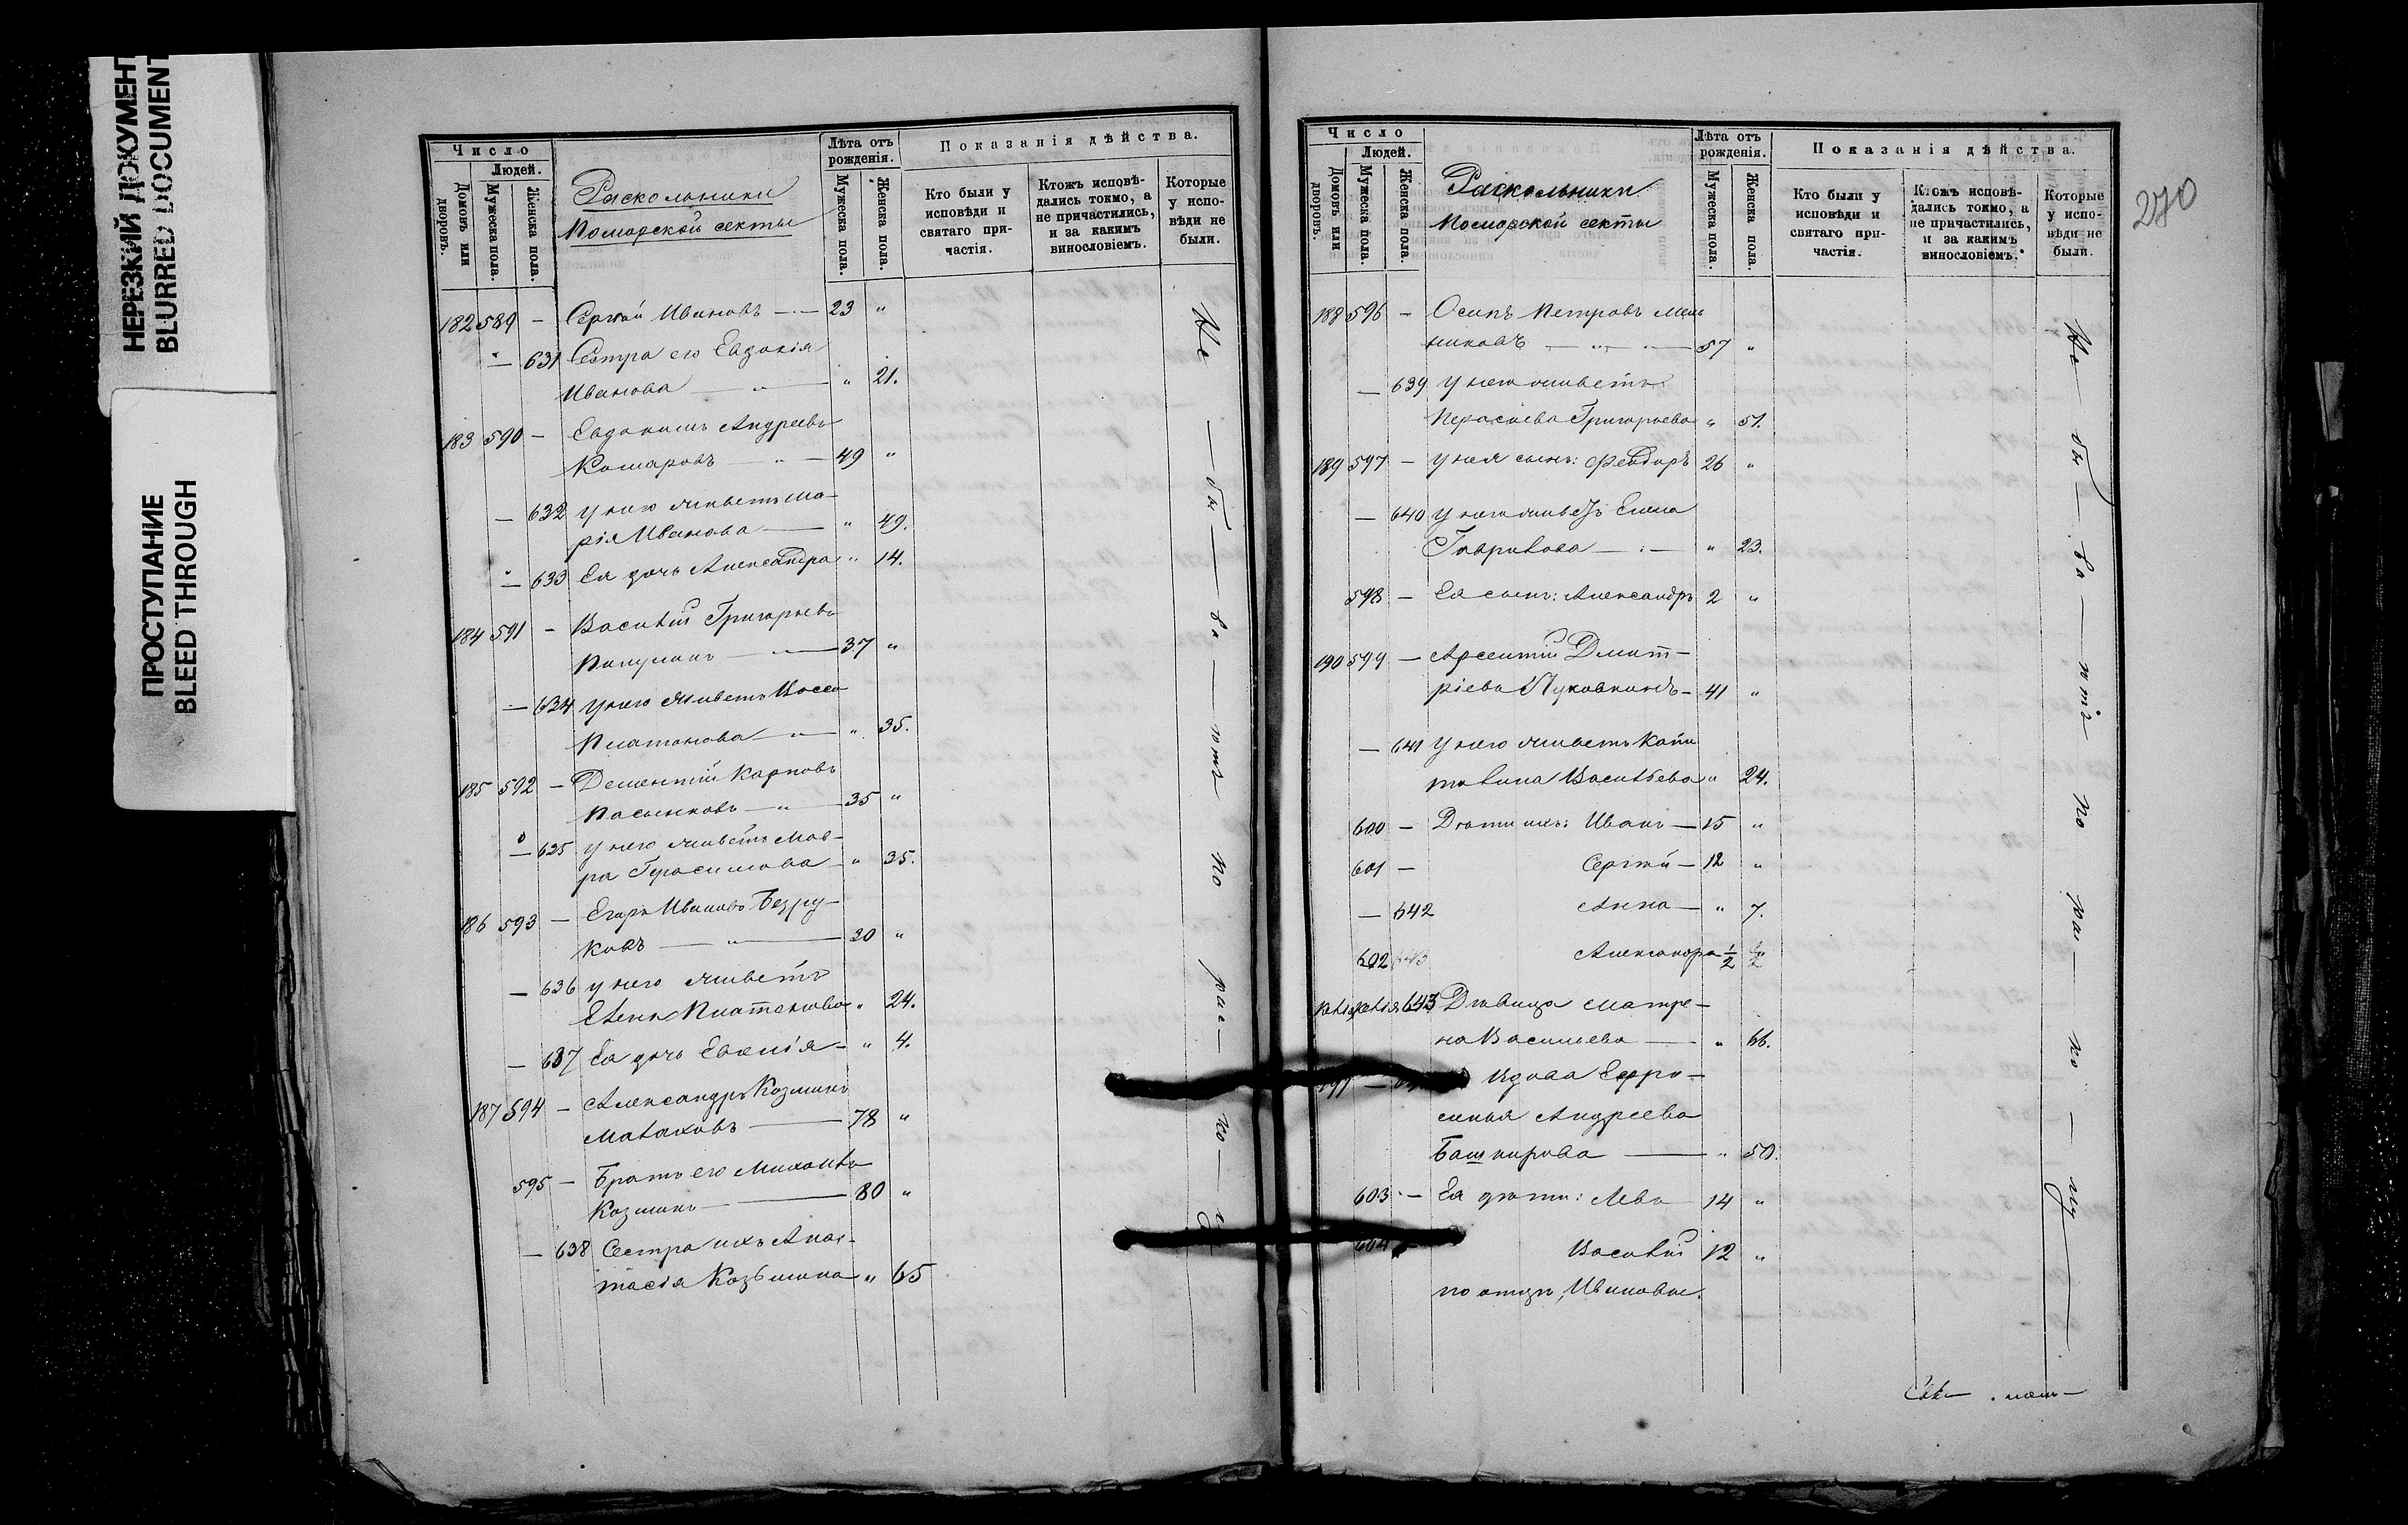 НЕРЕЗКИЙ ДОКУМЕНТ
BLURRED DOCUMENT
ПРОСТУПАНИЕ
BLEED THROUGH
Число
Людей.
Домовъ или дворовъ.
Мужеска пола.
Женска пола.
Раскольники
Поморской секты
Лѣта отъ рожденія.
Мужеска пола.
Женска пола.
Показанія дѣйства.
Кто были у исповѣди и святаго причастія.
Ктожъ исповѣдались токмо, а не причастились, и за какимъ винословіемъ.
Которые у исповѣди не были.
182 589 — Сергѣй Ивановъ — 23 "
— 631 Сестра его Евдокія
Иванова — " — " 21.
183 590 — Евдокимъ Андреевъ
Комаровъ — " — 49 "
— 632 у него живетъ Ма-
рія Иванова — " 49.
— 633 Ея дочь Александра " 14.
184 591 — Василій Григорьевъ
37 "
— 634 у него живетъ Васса
Платонова — " — " 35.
185 592 — Дементій Карповъ
Пасынковъ — " — 35 "
— 635 у него живетъ Мав-
ра Герасимова — " 35.
186 593 — Егоръ Ивановъ Безру-
ковъ — " — 20 "
— 636 у него живетъ
Елена Платонова " 24.
— 637 Ея дочь Евгенія — " 4.
187 594 — Александръ Козминъ
Малаховъ — 78 "
595 — Братъ его Михаилъ
Козминъ — 80 "
— 638 Сестра ихъ Анас-
тасія Козьмина — " 65
Не — бы — ва — ютъ по рас — ко — лу
270
Число
Людей.
Домовъ или дворовъ.
Мужеска пола.
Женска пола.
Раскольники
Поморской секты
Лѣта отъ рожденія.
Мужеска пола.
Женска пола.
Показанія дѣйства.
Кто были у исповѣди и святаго причастія.
Ктожъ исповѣдались токмо, а не причастились, и за какимъ винословіемъ.
Которые у исповѣди не были.
188 596 — Осипъ Петровъ Мель
никовъ — " — 57 "
— 639 у него живетъ
Григорьева " 51.
189 597 — у нея сынъ: Феодоръ 26 "
— 640 у него живетъ Елена
Гаврилова — : — " 23.
598 — Ея сынъ: Александръ 2 "
190 599 — Арсентій Дмит-
ріевъ Пуховкинъ — 41 "
— 641 у него живетъ Капи
толина Васильева " 24.
600 — Дѣти ихъ: Иванъ — 15 "
601 — Сергѣй — 12 "
— 642 Анна — " 7.
602 Александра ½
643 Дѣвица Матре-
на Васильева — " 66.
Вдова Евфро-
синья Андреева
Башкирова — " 50.
603 — Ея дѣти: Левъ 14 "
604 Василій 12 "
по отцѣ Ивановы.
Не — бы — ва — ютъ по рас — ко — лу